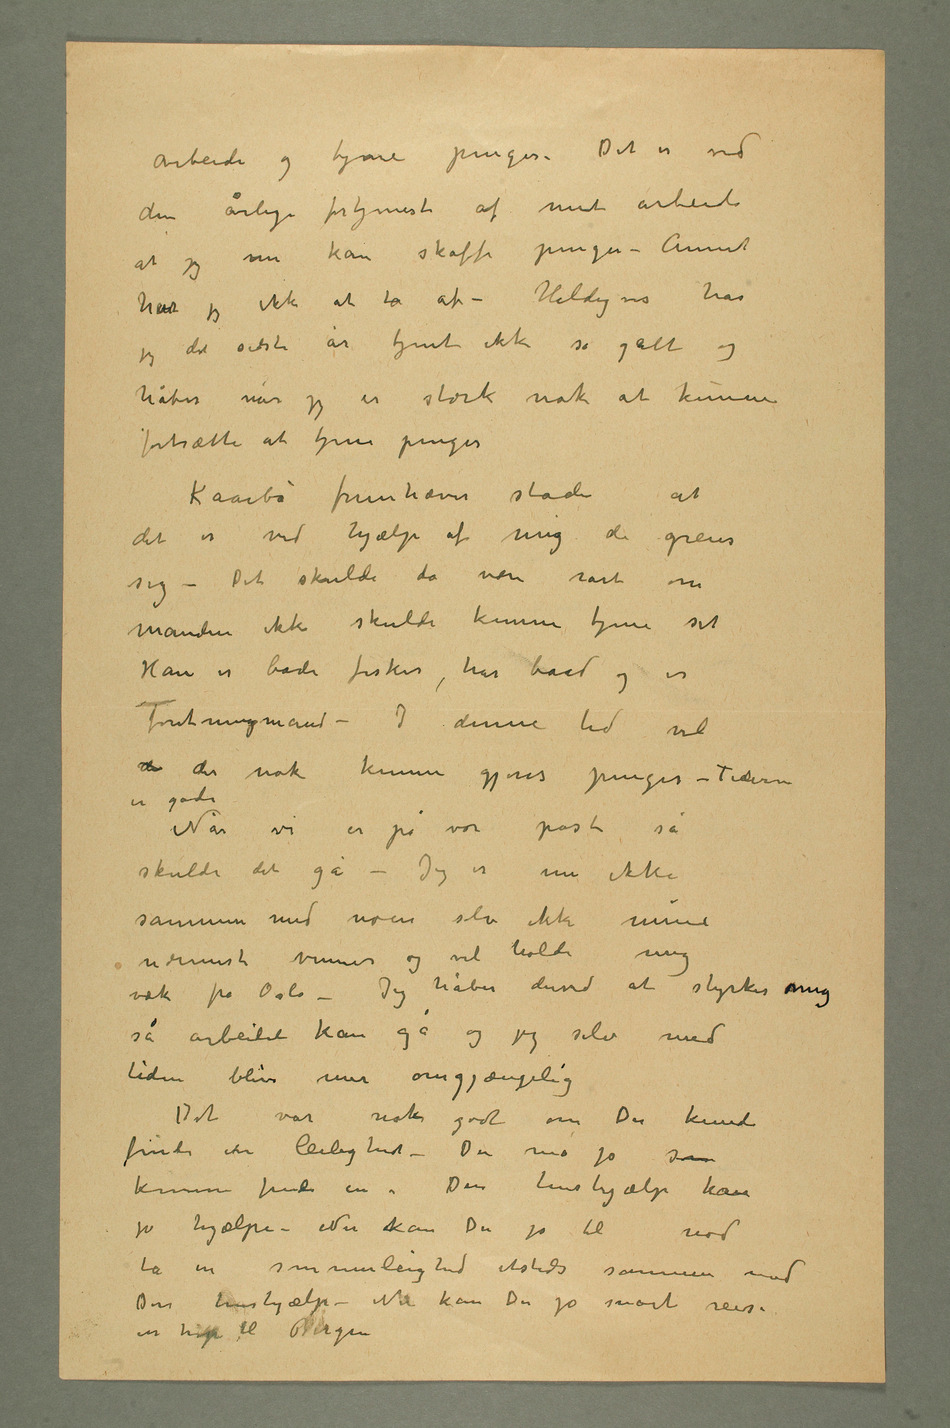 arbeide og tjene penger. Det er ved
den årlige fortjeneste af mit arbeide
at jeg nu kan skaffe penger – Annet
har jeg ikke at ta af – Heldigvis har
jeg det sidste år tjent ikke så galt og
håber når jeg er stærk nok at kunne
fortsætte at tjene penger
Kaarbö fremhæver stadi at
det er ved hjælp af mig de greier
sig – Det skulde da være rart om
manden ikke skulde kunne tjene sit
Han er både fisker, har baad og er
Foretningmand – I denne tid vil
der nok kunne gjøres penger – Tiderne
er gode
Når vi er på vor post så
skulde det gå – Jeg er nu ikke
sammen med noen selv ikke mine
nærmeste venner og vil holde mig
væk fra Oslo – Jeg håber derved at styrker mig
så arbeidet kan gå og jeg selv med
tiden blive mer omgjængelig
Det var nok godt om Du kunde
finde en Leilighed – Du må jo
kunne finde en. Din hushjælp kan
jo hjælpe – Nu kan Du jo til nød
ta en sommerleighed etsteds sammen med
Din hushjælp – Nu kan Du jo snart reise
en tip til Bergen